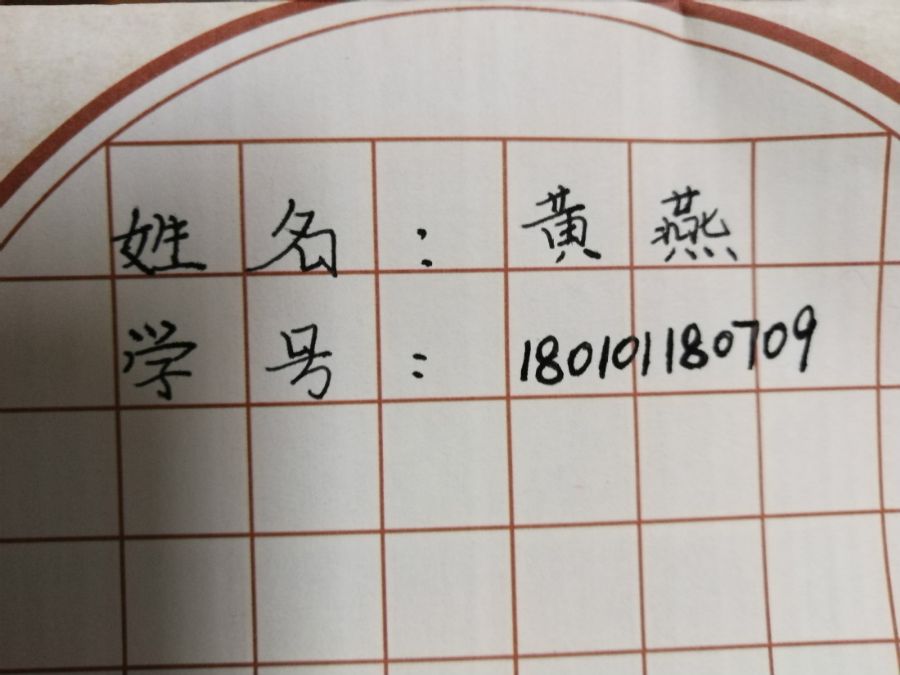 姓名：黄燕
学号：180101180709